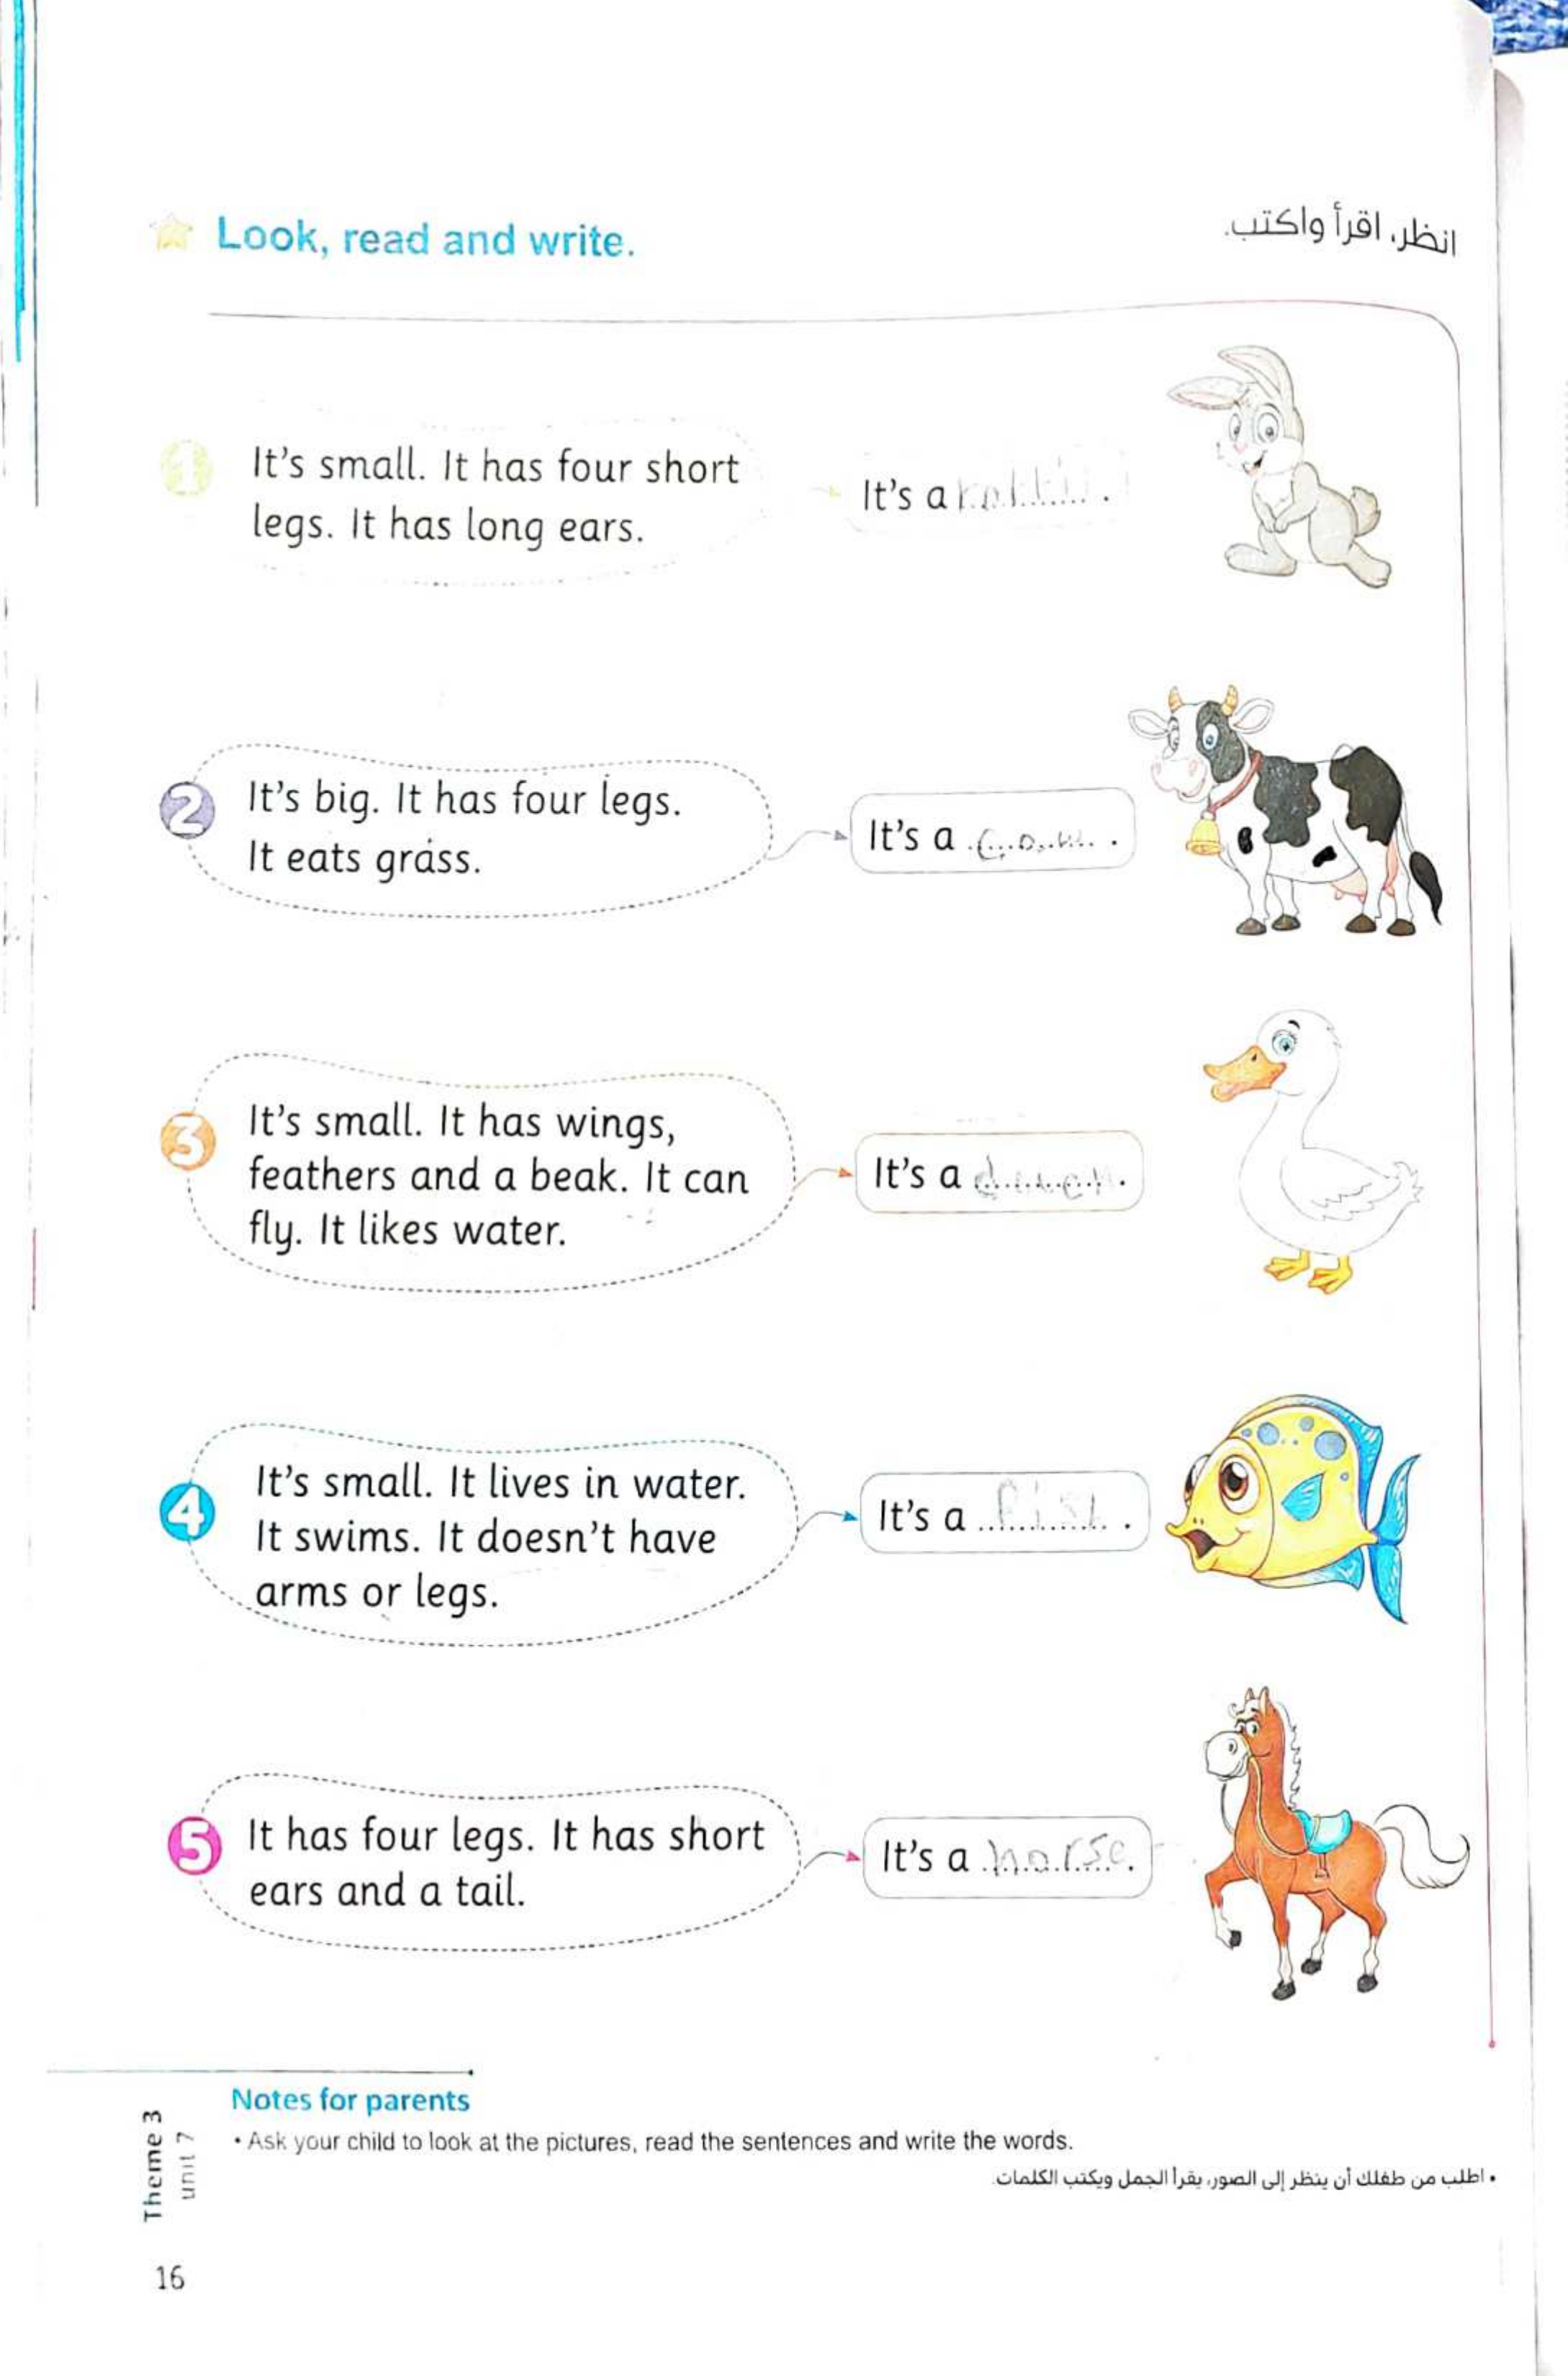 Look, read and write.
انظر، اقرأ واكتب.
1
It's small. It has four short
legs. It has long ears.
It's a
2
It's big. It has four legs.
It eats grass.
It's a cow.
3
It's small. It has wings,
feathers and a beak. It can
fly. It likes water.
It's a
4
It's small. It lives in water.
It swims. It doesn't have
arms or legs.
It's a
5
It has four legs. It has short
ears and a tail.
It's a horse.
Notes for parents
• Ask your child to look at the pictures, read the sentences and write the words.
• اطلب من طفلك أن ينظر إلى الصور، يقرأ الجمل ويكتب الكلمات.
Theme 3
unit 7
16